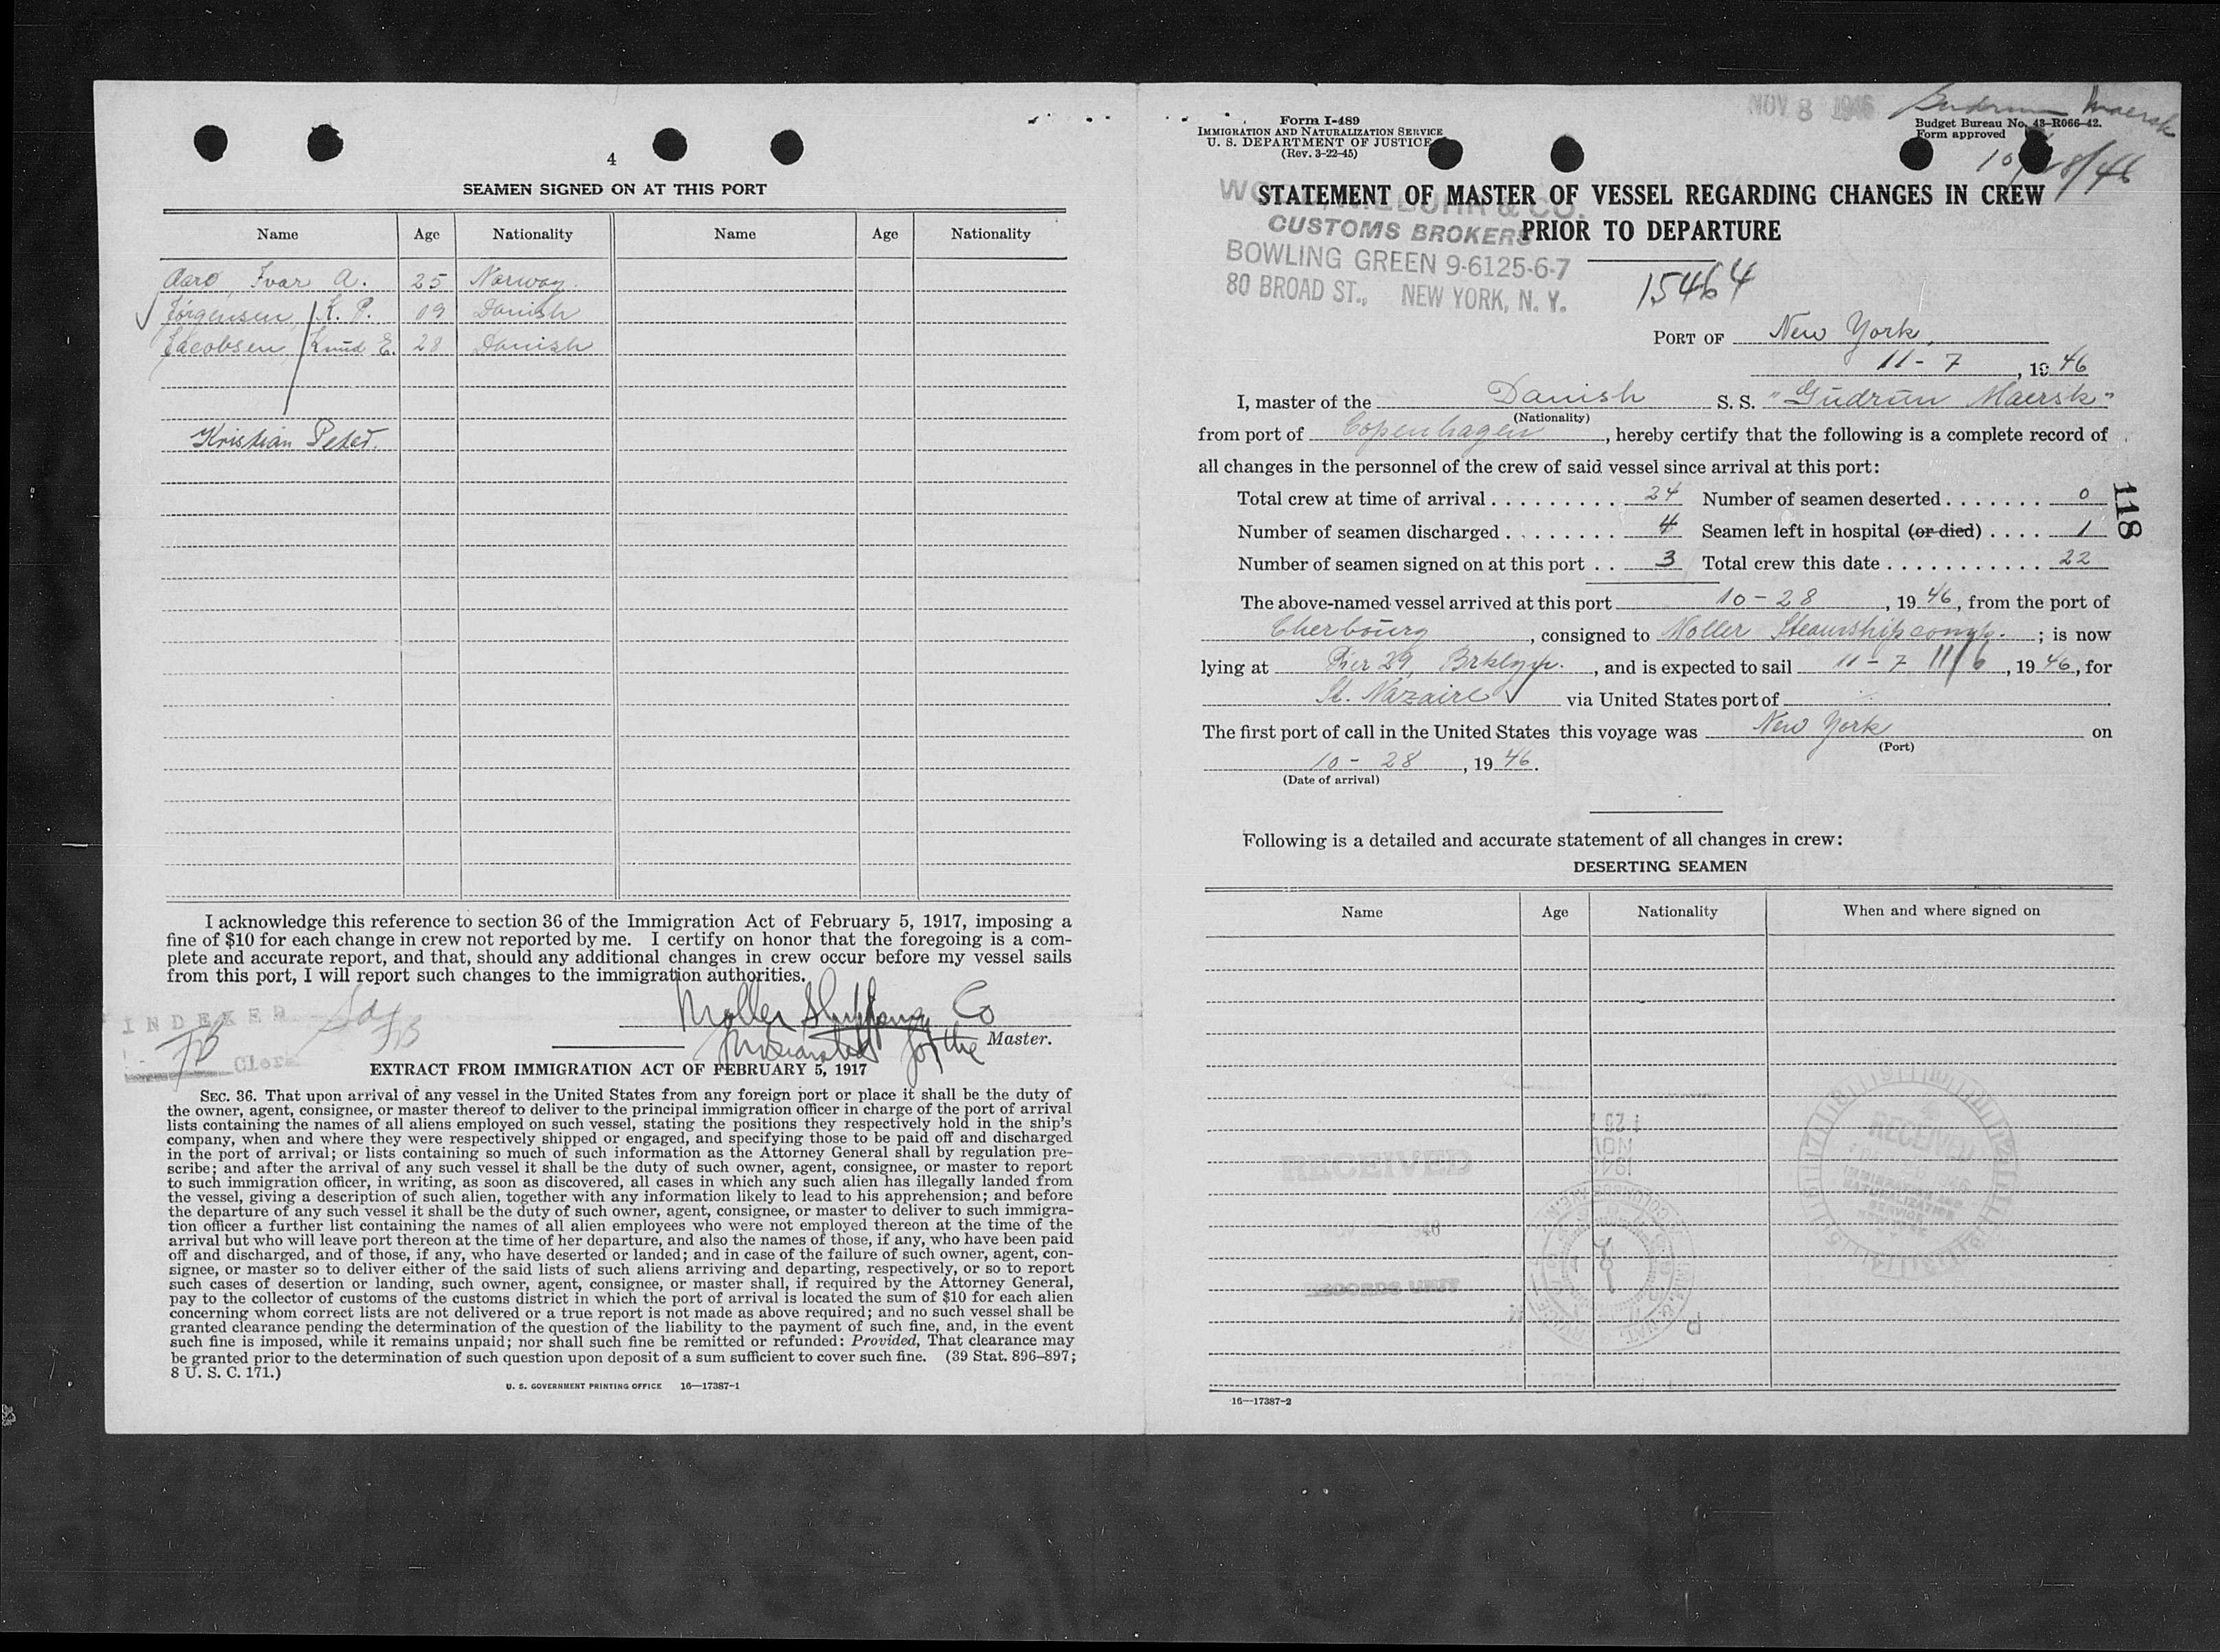 4
SEAMEN SIGNED ON AT THIS PORT
Name Age Nationality Name Age Nationality
Aarö, Ivar A. 25 Norway.
Jörgensen, K. P. 19 Danish
Jacobsen, Knud E. 28 Danish
Kristian Peter.
I acknowledge this reference to section 36 of the Immigration Act of February 5, 1917, imposing a
fine of $10 for each change in crew not reported by me. I certify on honor that the foregoing is a com-
plete and accurate report, and that, should any additional changes in crew occur before my vessel sails
from this port, I will report such changes to the immigration authorities.
Moller Shipping Co
for the Master.
INDEXED
Clerk
EXTRACT FROM IMMIGRATION ACT OF FEBRUARY 5, 1917
SEC. 36. That upon arrival of any vessel in the United States from any foreign port or place it shall be the duty of
the owner, agent, consignee, or master thereof to deliver to the principal immigration officer in charge of the port of arrival
lists containing the names of all aliens employed on such vessel, stating the positions they respectively hold in the ship's
company, when and where they were respectively shipped or engaged, and specifying those to be paid off and discharged
in the port of arrival; or lists containing so much of such information as the Attorney General shall by regulation pre-
scribe; and after the arrival of any such vessel it shall be the duty of such owner, agent, consignee, or master to report
to such immigration officer, in writing, as soon as discovered, all cases in which any such alien has illegally landed from
the vessel, giving a description of such alien, together with any information likely to lead to his apprehension; and before
the departure of any such vessel it shall be the duty of such owner, agent, consignee, or master to deliver to such immigra-
tion officer a further list containing the names of all alien employees who were not employed thereon at the time of the
arrival but who will leave port thereon at the time of her departure, and also the names of those, if any, who have been paid
off and discharged, and of those, if any, who have deserted or landed; and in case of the failure of such owner, agent, con-
signee, or master so to deliver either of the said lists of such aliens arriving and departing, respectively, or so to report
such cases of desertion or landing, such owner, agent, consignee, or master shall, if required by the Attorney General,
pay to the collector of customs of the customs district in which the port of arrival is located the sum of $10 for each alien
concerning whom correct lists are not delivered or a true report is not made as above required; and no such vessel shall be
granted clearance pending the determination of the question of the liability to the payment of such fine, and, in the event
such fine is imposed, while it remains unpaid; nor shall such fine be remitted or refunded: Provided, That clearance may
be granted prior to the determination of such question upon deposit of a sum sufficient to cover such fine. (39 Stat. 896–897;
8 U. S. C. 171.)
U. S. GOVERNMENT PRINTING OFFICE 16—17387-1
Form I-489
IMMIGRATION AND NATURALIZATION SERVICE
U. S. DEPARTMENT OF JUSTICE
(Rev. 3-22-45)
NOV 8 1946
Gudrun Maersk
Budget Bureau No. 43-R066-42.
Form approved
10/28/46
STATEMENT OF MASTER OF VESSEL REGARDING CHANGES IN CREW
PRIOR TO DEPARTURE
& CO.
CUSTOMS BROKERS
BOWLING GREEN 9-6125-6-7
80 BROAD ST., NEW YORK, N. Y.
15464
PORT OF New York,
11-7, 1946
I, master of the Danish S. S. "Gudrun Maersk"
(Nationality)
from port of Copenhagen, hereby certify that the following is a complete record of
all changes in the personnel of the crew of said vessel since arrival at this port:
Total crew at time of arrival . . . . . . . . . 24 Number of seamen deserted . . . . . . . 0
Number of seamen discharged . . . . . . . . 4 Seamen left in hospital (or died) . . . . 1
Number of seamen signed on at this port . . 3 Total crew this date . . . . . . . . . . . 22
118
The above-named vessel arrived at this port 10-28, 1946, from the port of
Cherbourg, consigned to Moller Steamship comp.; is now
lying at Pier 29, Brklyn., and is expected to sail 11-7 11/6, 1946, for
St. Nazaire via United States port of
The first port of call in the United States this voyage was New York on
(Port)
10-28, 1946.
(Date of arrival)
Following is a detailed and accurate statement of all changes in crew:
DESERTING SEAMEN
Name Age Nationality When and where signed on
RECEIVED
RECORDS UNIT
RECEIVED
IMMIGRATION AND
NATURALIZATION
SERVICE
16—17387-2